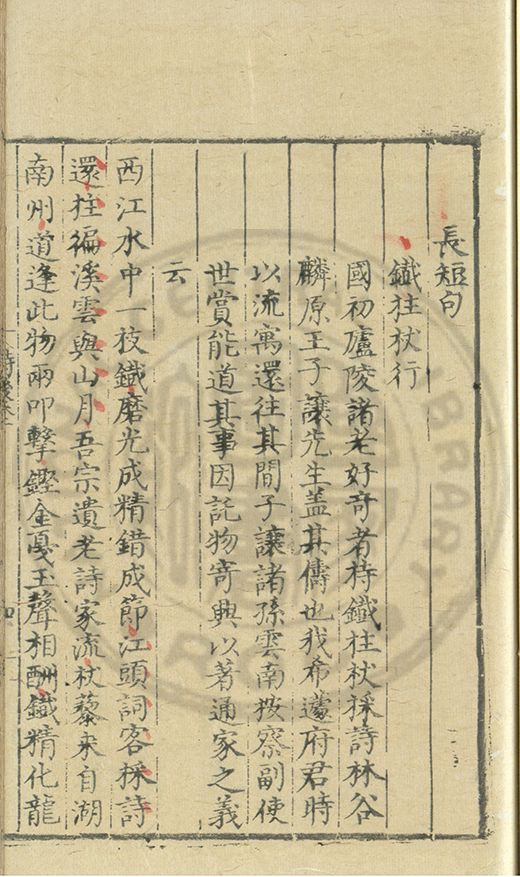 長短句
鐵拄杖行
國初廬陵諸老好奇者持鐵拄杖採詩林谷
麟原王子讓先生蓋其儔也我希蘧府君時
以流寓還往其間子讓諸孫雲南按察副使
世賞能道其事因託物寄興以著通家之義
云
西江水中一枝鐵磨光成精錯成節江頭詞客採詩
還拄徧溪雲與山月吾宗遺老詩家流杖藜來自湖
南州道逢此物兩叩擊鏗金戞玉聲相酬鐵精化龍